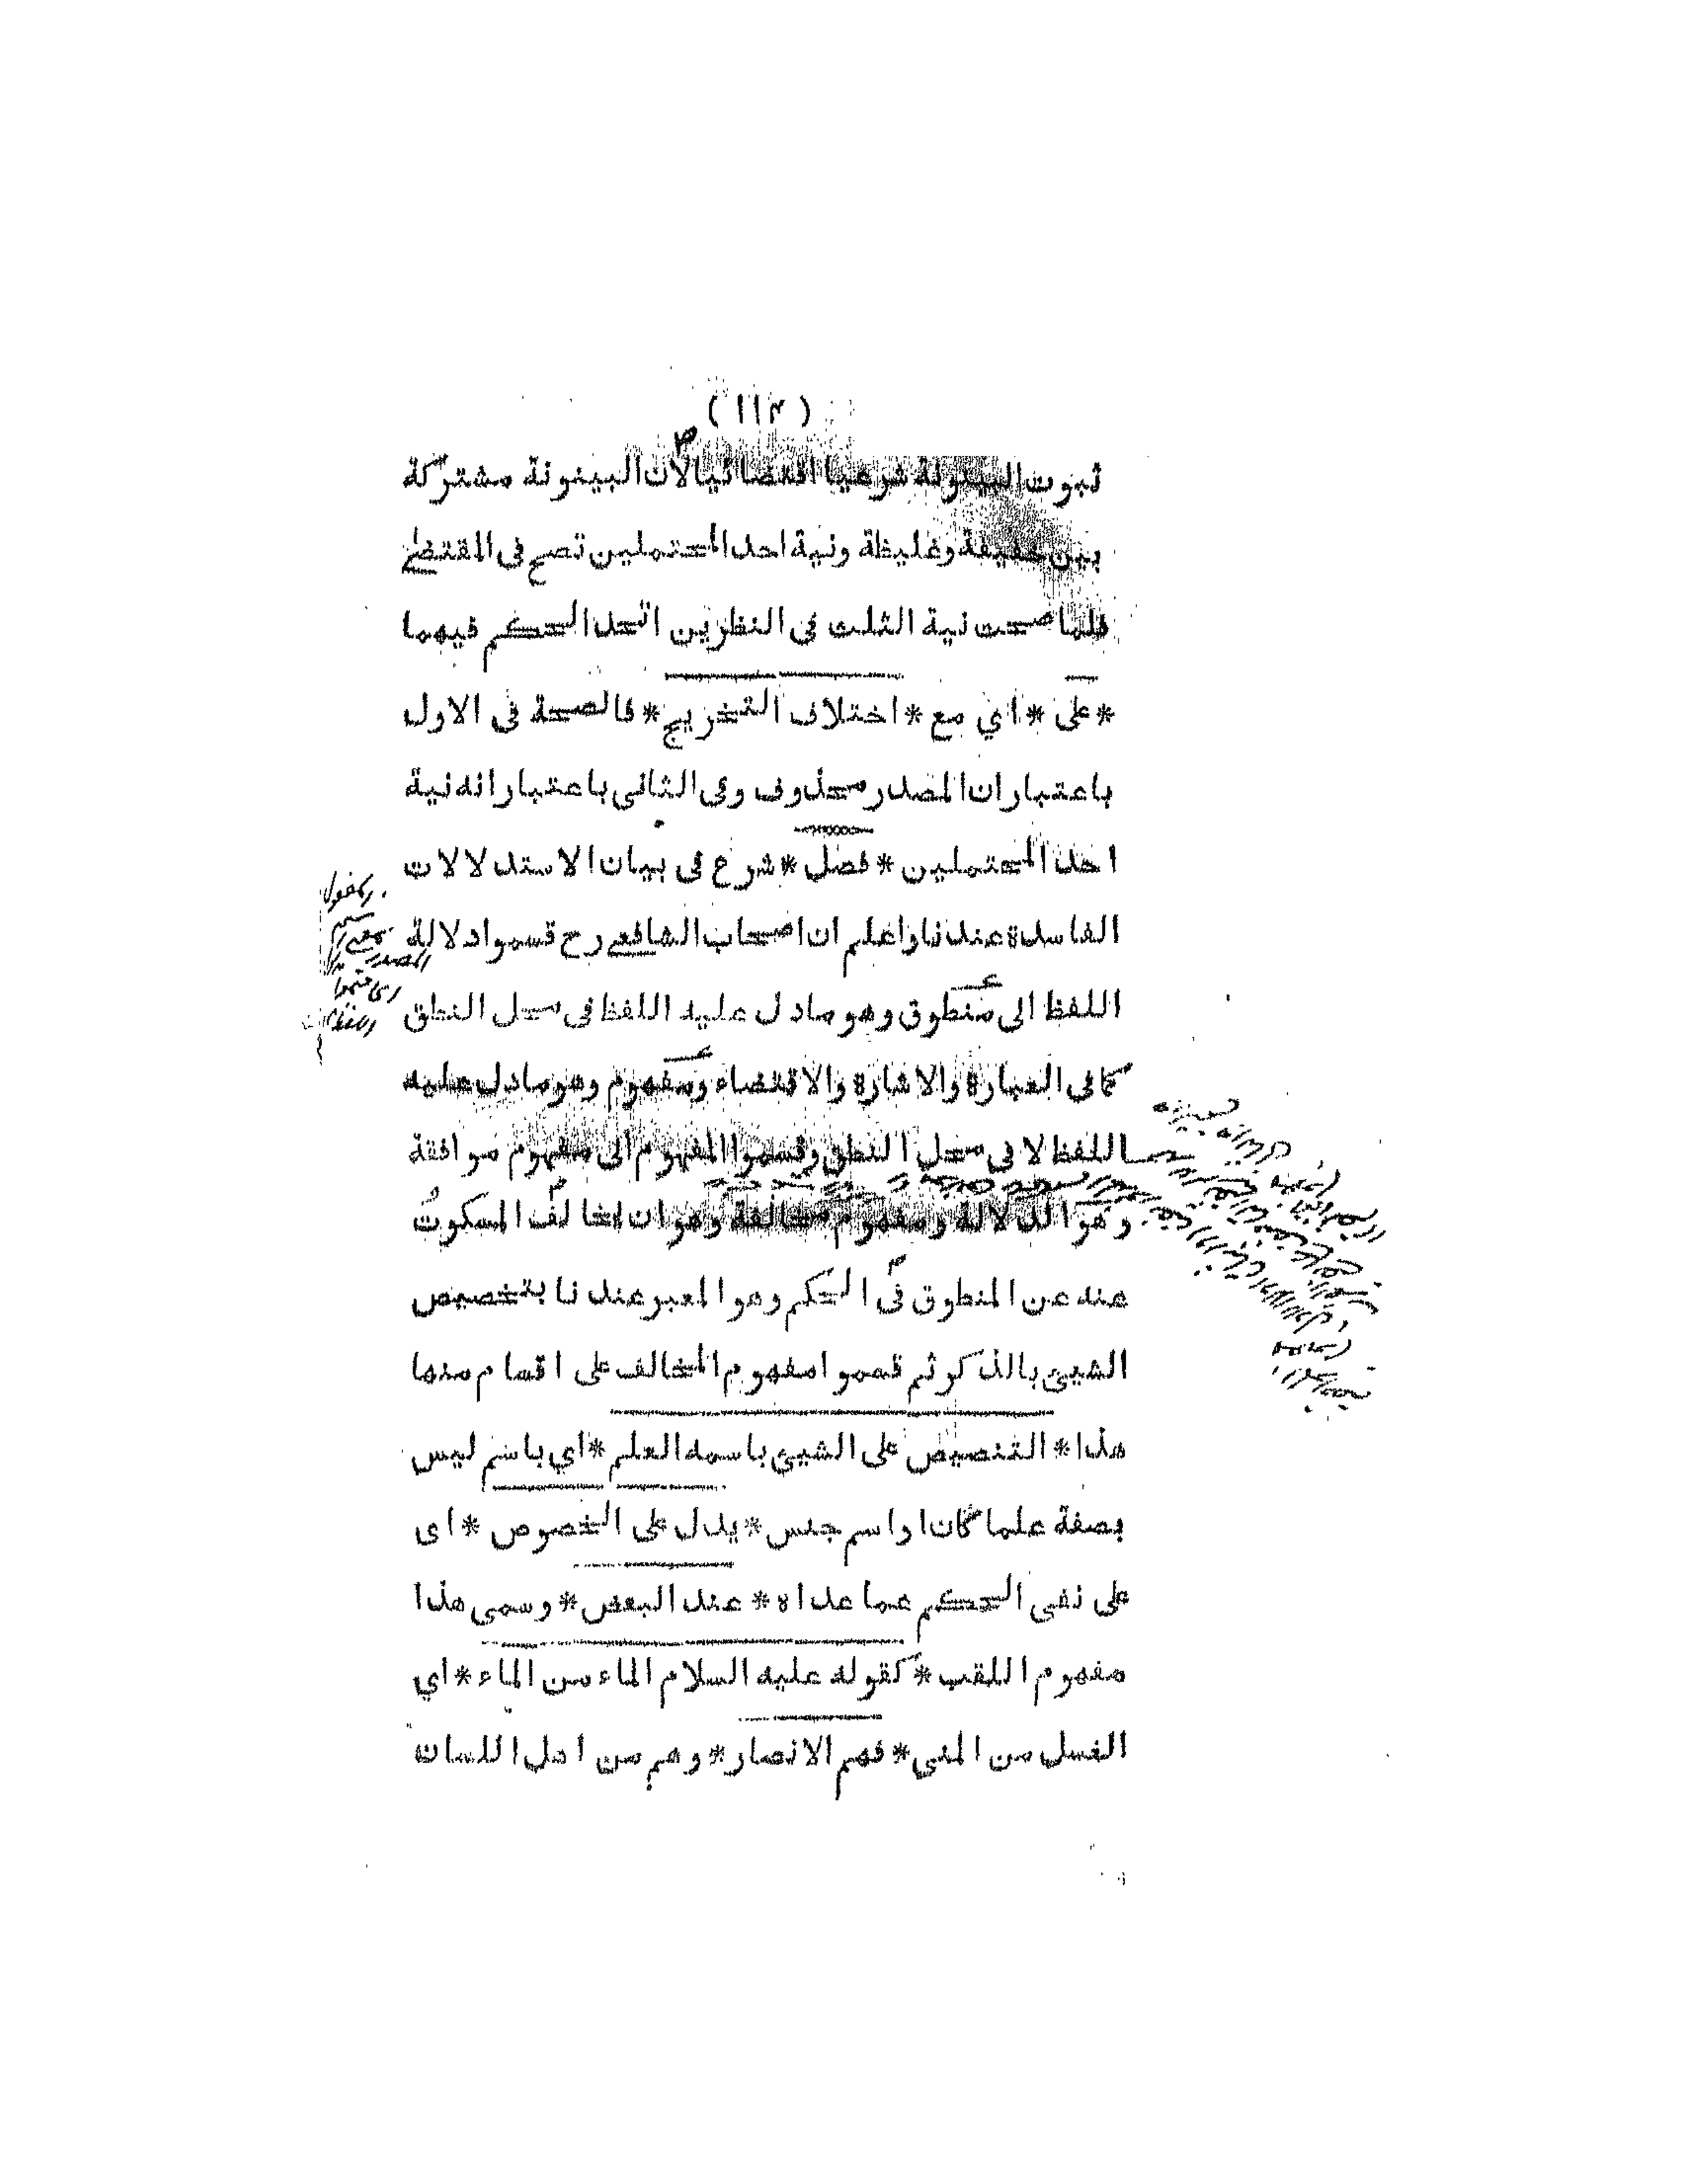 ( ١١٢ )
ثبوت البينونة شرعيا اقتضائيا لان البينونة مشتركة
بين خفيفة وغليظة ونية احد المحتملين تصح في المقتضي
فلما صحت نية الثلث في النظرين اتحد الحكم فيهما
*على * اي مع * اختلاف التخريج * فالصحة في الاول
باعتبار ان المصدر محذوف وفي الثاني باعتبار انه نية
احد المحتملين * فصل * شرع في بيان الاستدلالات
الفاسدة عندنا واعلم ان اصحاب الشافعي رح قسموا دلالة
اللفظ الى منطوق وهو مادل عليه اللفظ في محل النطق
كما في العبارة والاشارة والاقتضاء ومفهوم وهو مادل عليه
اللفظ لا في محل النطق وقسموا المفهوم الى مفهوم موافقة
وهو الدلالة ومفهوم مخالفة وهو ان يخالف المسكوت
عنه عن المنطوق في الحكم وهو المعبر عندنا بتخصيص
الشيئ بالذكر ثم قسموا مفهوم المخالف على اقسام منها
هذا * التنصيص على الشيئ باسمه العلم * اي باسم ليس
بصفة علما كان او اسم جنس * يدل على الخصوص * اى
على نفى الحكم عما عداه * عند البعض * وسمى هذا
مفهوم اللقب * كقوله عليه السلام الماء من الماء * اي
الغسل من المنى * فهم الانصار * وهم من اهل اللسان